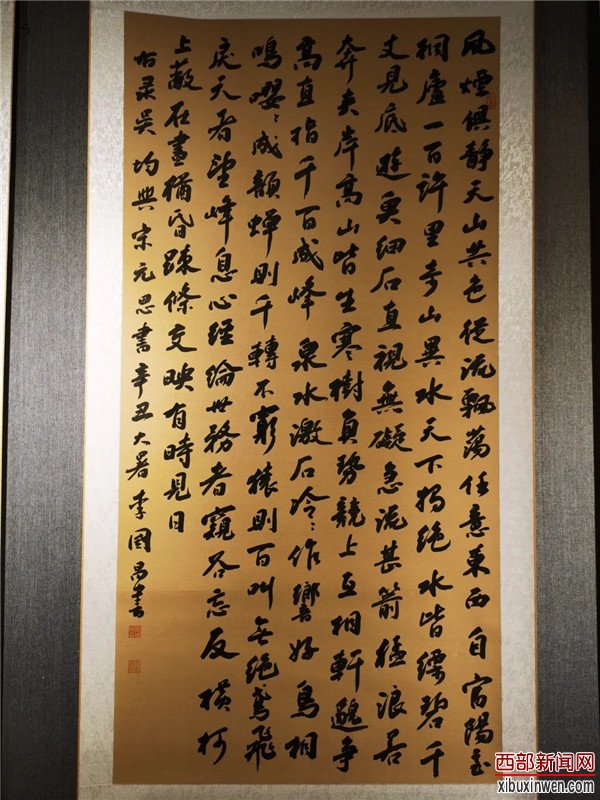 風煙俱静天山共色從流飄蕩任意東西自富陽至
桐廬一百許里奇山異水天下独絕水皆縹碧千
丈見底遊魚細石直視無礙急流甚箭猛浪若
奔夾岸高山皆生寒樹負勢競上互相軒邈爭
高直指千百成峰泉水激石泠〻作響好鳥相
鳴嚶〻成韻蟬則千轉不窮猿則百叫无絕鳶飛
戾天者望峰息心經綸世務者窺谷忘反橫柯
上蔽在晝猶昏踈條交映有時見日
右录吴均與宋元思書辛丑大暑李國昌書
西部新闻网
xibuxinwen.com